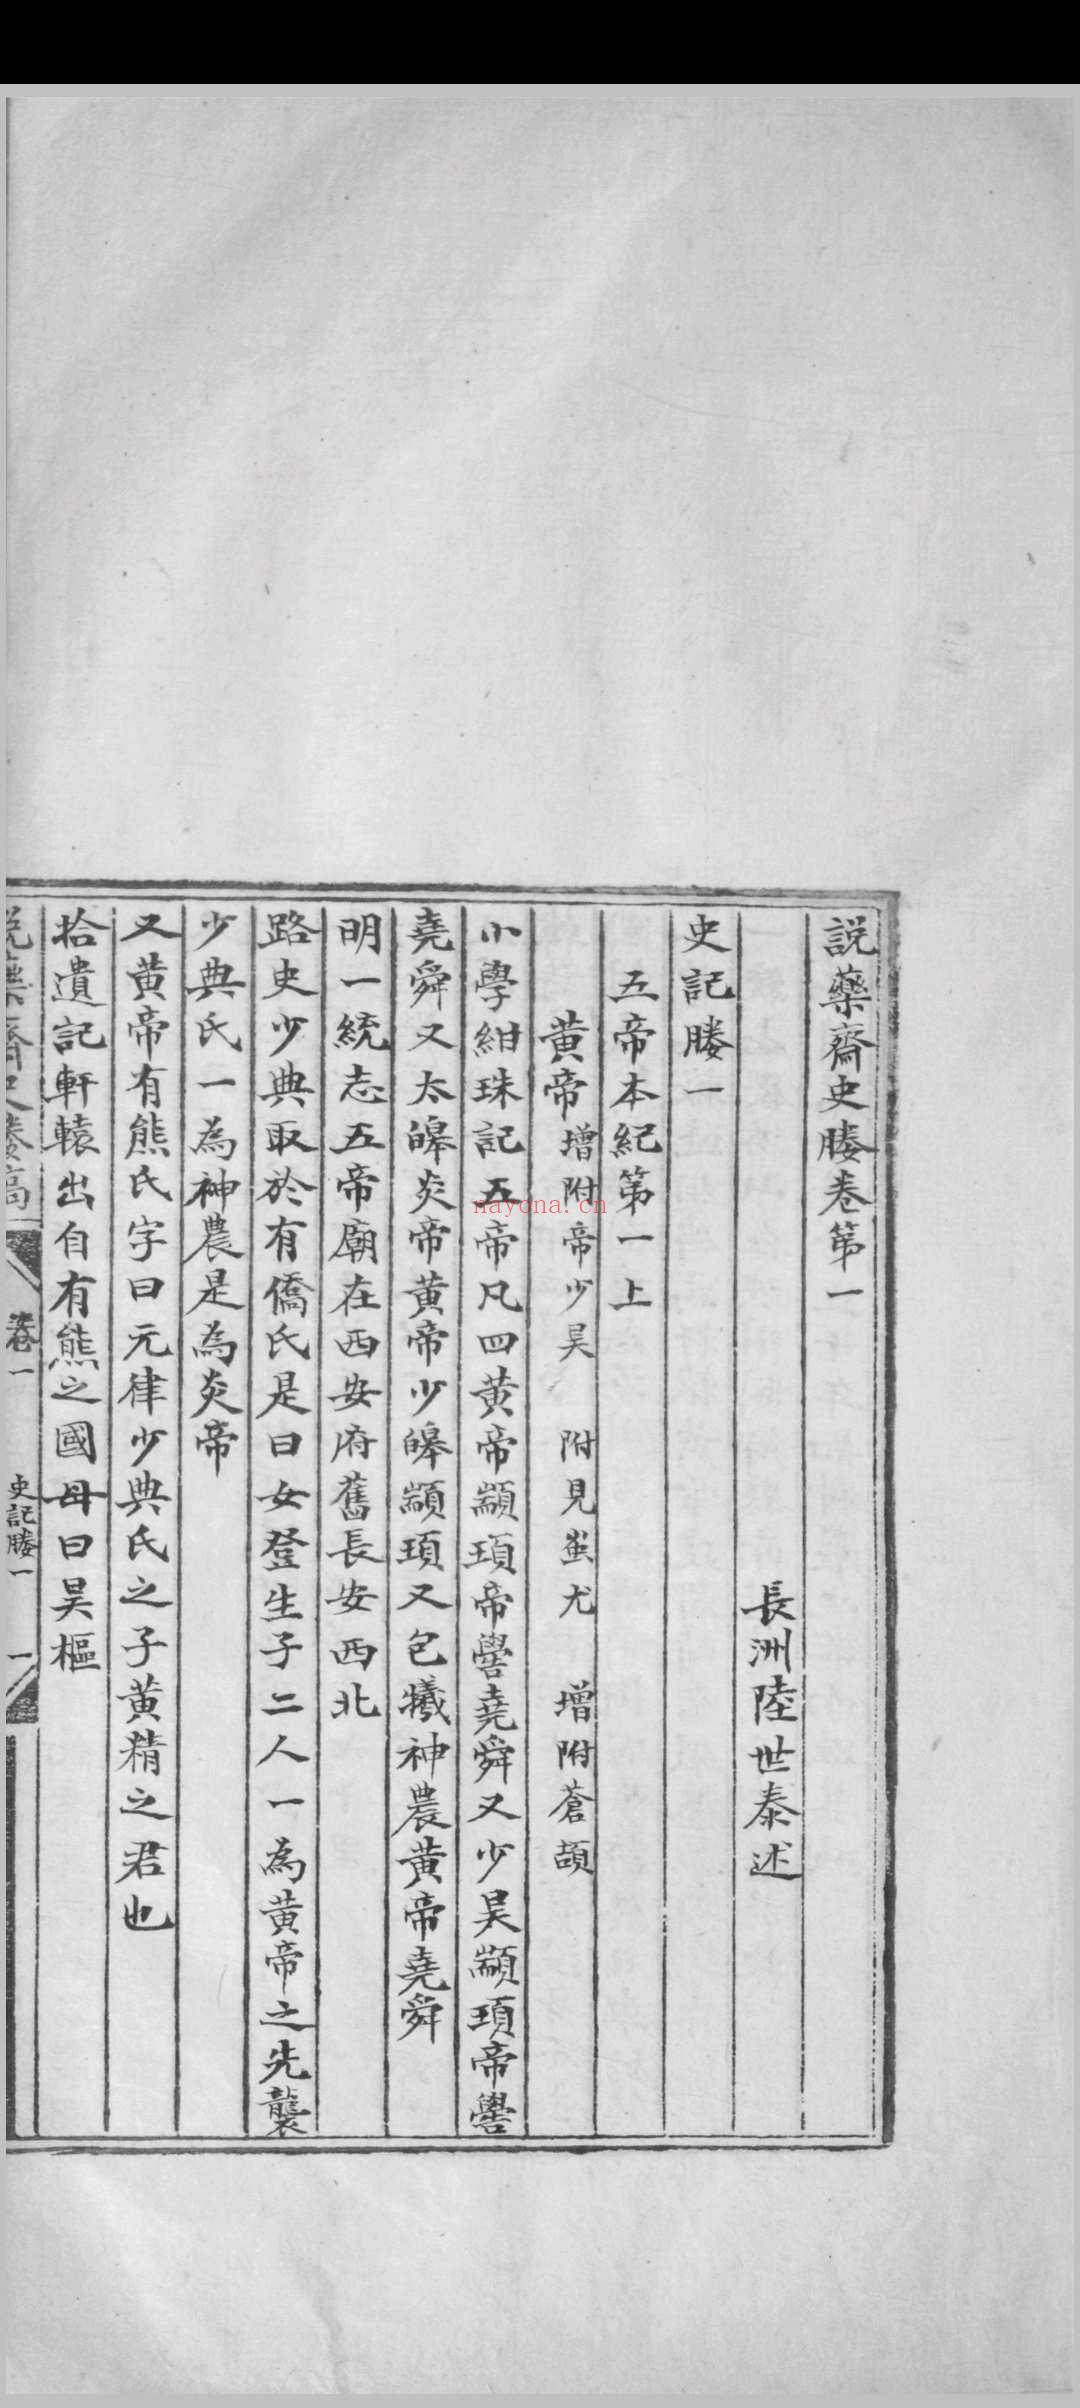 説藥齋史媵卷第一
長洲陸世泰述
史記媵一
五帝本紀第一上
黄帝增附帝少昊 附見蚩尤 增附蒼頡
小學紺珠記五帝凡四黄帝顓頊帝嚳堯舜又少昊顓頊帝嚳
堯舜又太皞炎帝黄帝少皞顓頊又包犧神農黄帝堯舜
明一統志五帝廟在西安府舊長安西北
路史少典取於有僑氏是曰女登生子二人一為黄帝之先襲
少典氏一為神農是為炎帝
又黄帝有熊氏字曰元律少典氏之子黄精之君也
拾遺記軒轅出自有熊之國母曰昊樞
説藥齋史媵高 卷一 史記媵一 一
nayona.cn